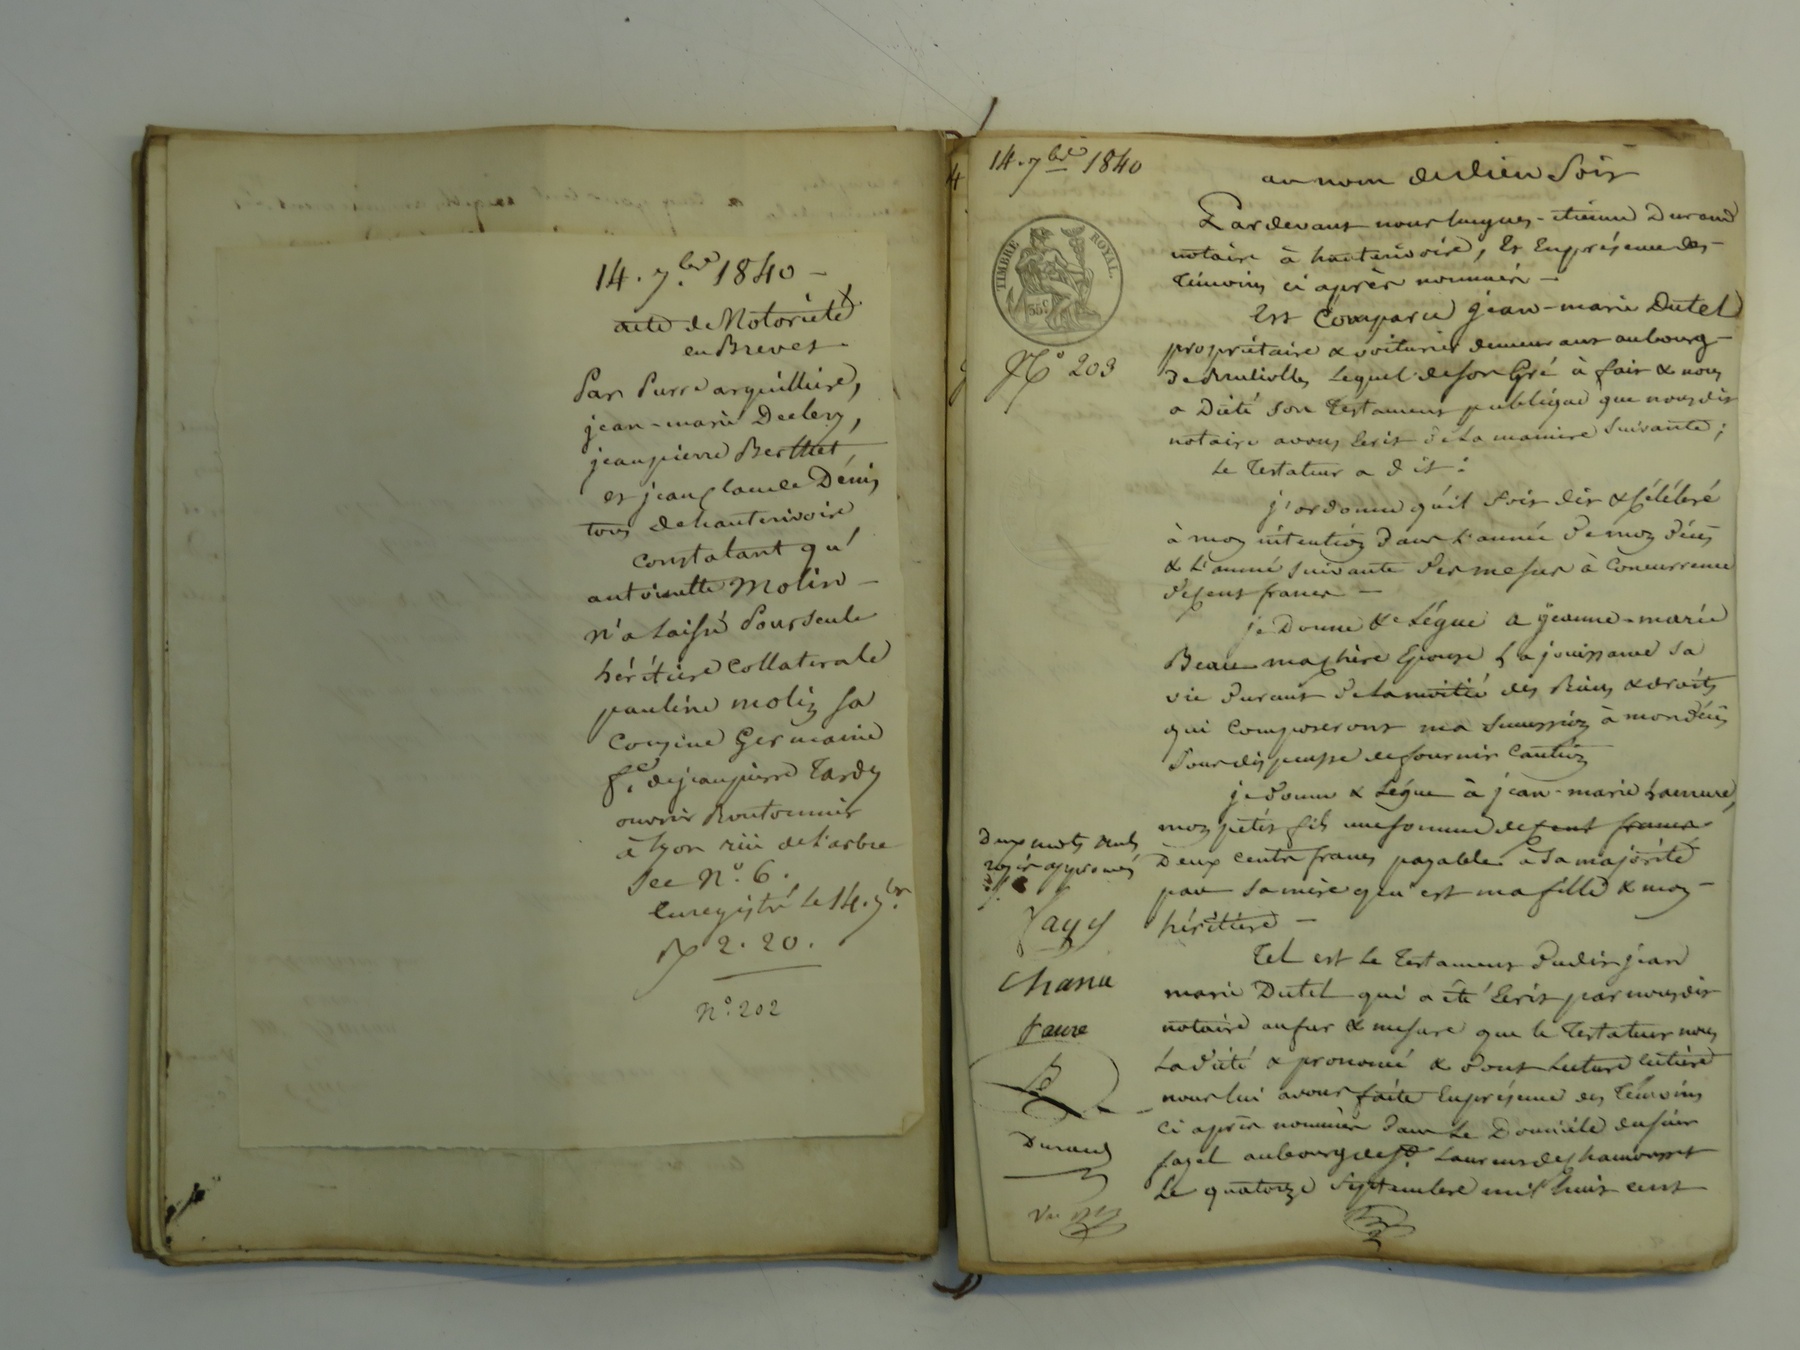 14. 7.bre 1840 -
acte de Notoriété
en Brevet
Par Pierre arquillière,
jean-marie Declery,
jean pierre Berthet,
et jean Claude Dénis
tous de hauterivoire
constatant qu'
antoinette Molin -
n'a laissé Pour seule
héritière Collaterale
pauline molin sa
Cousine Germaine
f.e de jean pierre Tardy
ouvrier Boutonnier
à lyon rue de l'arbre
sec N.o 6.
Enregistré le 14. 7.bre
2. 20.
N.o 202
14. 7bre 1840
TIMBRE ROYAL.
35c
N.o 203
au nom de dieu Soit
Pardevant nous jacques-étienne Durand
notaire à hauterivoire, Et En présence des
témoins ci après nommés -
Est Comparu jean-marie Dutel
propriétaire & voiturier demeurant au bourg
de Lequel de son Gré à fait & nous
a Dicté son testament publique que nous dit
notaire avons Ecrit de La maniere Suivante;
Le testateur a dit:
j'ordonne qu'il Soit dit & Célébré
à mon intention dans L'année de mon décès
& L'année Suivante des messes à Concurrence
de cent francs -
je Donne & Légue a jeanne-marie
Beau ma chère Epouse La jouissance sa
vie durant de La moitié des Biens & droits
qui Composeront ma Succession à mon décès
Sous dispense de fournir Caution
je donne & Légue à jean-marie
mon petit fils une somme de cent francs
Deux cents francs payable à sa majorité
par sa mère qui est ma fille & mon
héritière -
Tel est Le testament dudit jean
marie Dutel qui a été Ecrit par nous dit
notaire au fur & mesure que le testateur nous
La dicté & prononcé & dont Lecture Entière
nous lui avons faite En présence des témoins
ci après nommés dans Le Domicile du sieur
fayel au bourg de St. Laurent de chamousset
Le quatorze Septembre mil huit cent
Deux mots nuls
approuvés
fayel
Chana
faure
Durand